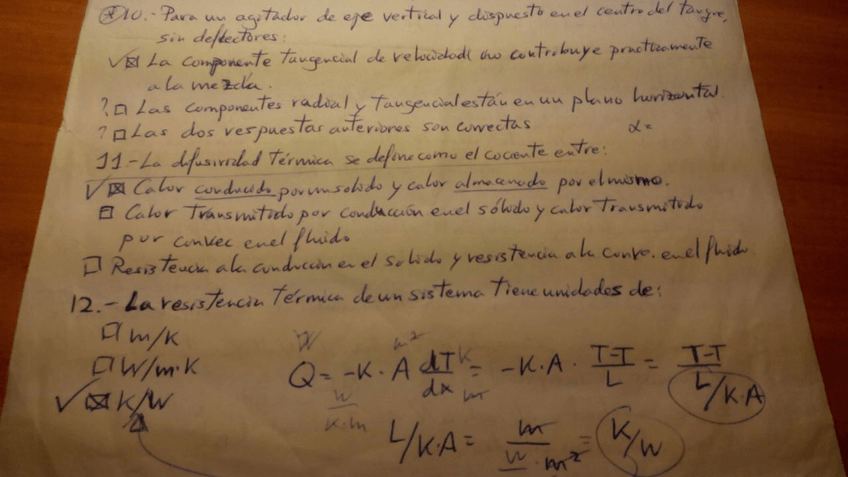 10.- Para un agitador de eje vertical y dispuesto en el centro del tanque,
sin deflectores:
✓☒ La componente tangencial de velocidad no contribuye practicamente
a la mezcla.
? □ Las componentes radial y tangencial están en un plano horizontal.
? □ Las dos respuestas anteriores son correctas
α=
11-La difusividad térmica se define como el cociente entre:
✓☒ Calor conducido por un solido y calor almacenado por el mismo.
□ Calor transmitido por conducción en el sólido y calor transmitido
por convec en el fluido
□ Resistencia a la conducción en el solido y resistencia a la conve. en el fluido
12.- La resistencia térmica de un sistema tiene unidades de:
□ m/K
□ W/m·K
✓☒ K/W
W m² K
Q = -K · A dT/dx = -K·A · T-T/L = T-T / L/K·A
W/K·m m
L/K·A = m / W · m² = K/W